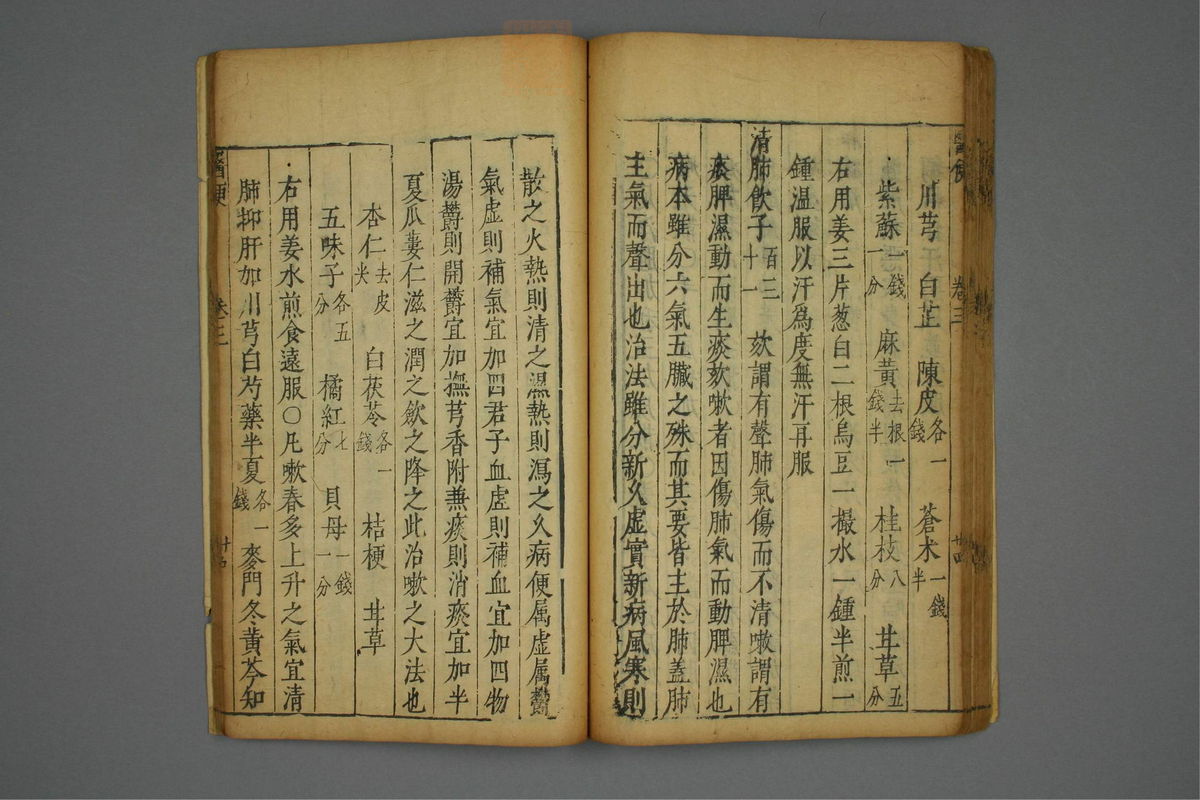 醫便 卷三 廿四
川芎 白芷 陳皮各一錢 蒼术一錢半
紫蘇一錢一分 麻黃去根一錢半 桂枝八分 甘草五分
右用姜三片葱白二根烏豆一撮水一鍾半煎一
鍾温服以汗爲度無汗再服
清肺飲子百三十一 欬謂有聲肺氣傷而不清嗽謂有
痰脾濕動而生痰欬嗽者因傷肺氣而動脾濕也
病本雖分六氣五臟之殊而其要皆主於肺蓋肺
主氣而聲出也治法雖分新久虚實新病風寒則
散之火熱則清之濕熱則瀉之久病便属虚属欝
氣虚則補氣宜加四君子血虚則補血宜加四物
湯欝則開欝宜加撫芎香附兼痰則消痰宜加半
夏瓜蔞仁滋之潤之歛之降之此治嗽之大法也
杏仁去皮尖 白茯苓各一錢 桔梗 甘草
五味子各五分 橘紅七分 貝母一錢一分
右用姜水煎食遠服〇凡嗽春多上升之氣宜清
肺抑肝加川芎白芍藥半夏各一錢 麥門冬黃芩知
醫便 卷三 廿四